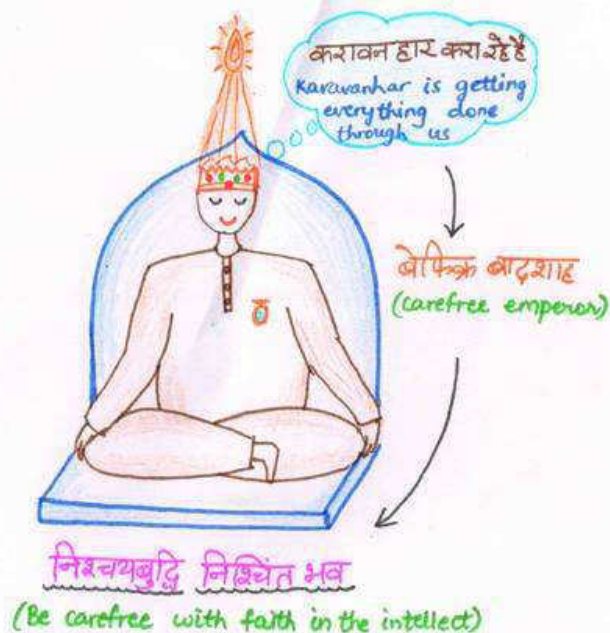 करावनहार करा रहे है
Karavanhar is getting
everything done
through us
बेफिक्र बादशाह
(carefree emperor)
निश्चयबुद्धि निश्चिंत भव
(Be carefree with faith in the intellect)